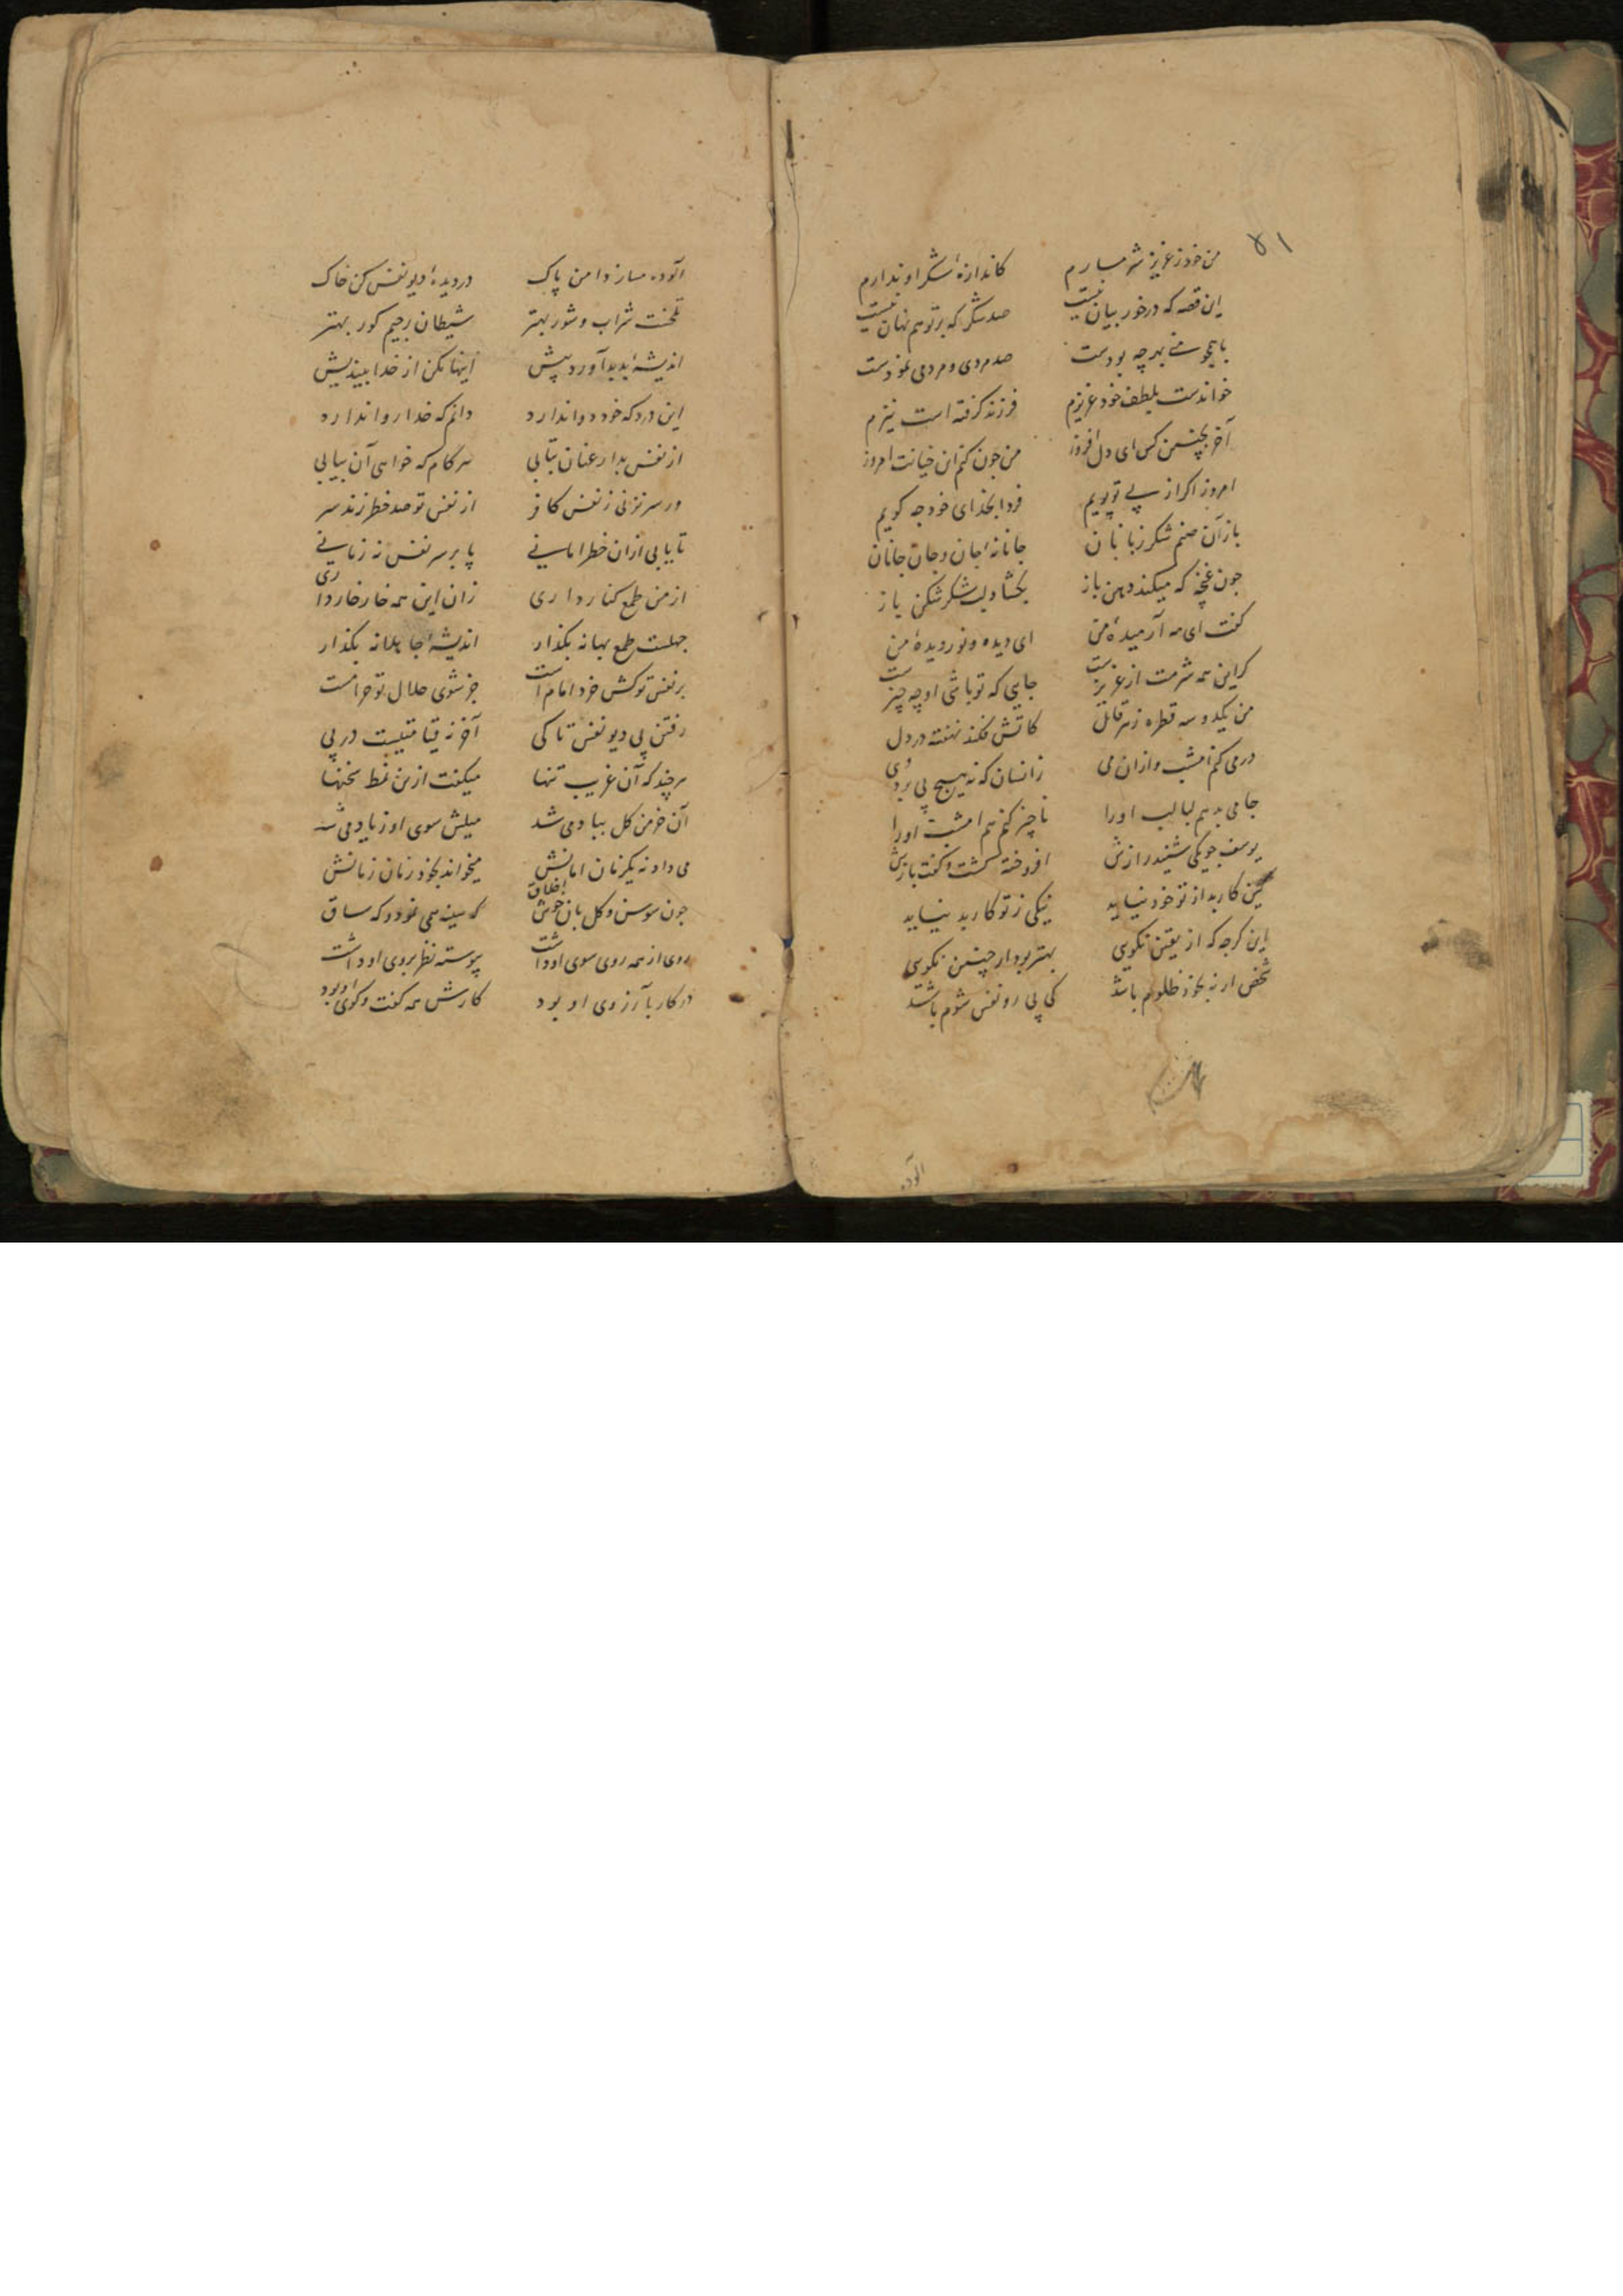 ۵۱
من خود ز عزیز شرمسارم کاندازهٔ شکر او ندارم
این قصه که درخور بیان نیست صد شکر که بر تو هم نهان نیست
با همچو منی بهر چه بودست صد مردی و مردمی نمودست
خواندست بلطف خود عزیزم فرزند کرفته است نیزم
آخر بچنین کس ای دل افروز من جون کنم این خیانت امروز
امروز اکر از پی تو پویم فردا بخدای خود چه کویم
باز آن صنم شکر زبانان جانانهٔ جان و جان جانان
جون غنچه که میکند دهن باز بکشاد لب شکرشکن باز
کفت ای مه آرمیدهٔ من ای دیده و نور دیدهٔ من
کر این همه شرمت از عزیزست جایی که تو باشی او چه چیزست
من یکدو سه قطره زهر قاتل کاتش فکند نهفته در دل
در می کنم امشب و ازان می زانسان که نه هیچ پی برد وی
جامی بدهم لبالب او را ناچیز کنم هم امشب او را
یوسف جو یکی شنید رازش افروخته کشت و کفت بازش
کین کار بد از تو خود نیاید نیکی ز تو کار بد نیاید
این کرچه که از یقین نکویی بهتر بود ار چنین نکویی
شخص ار نه بخود ظلوم باشد کی پی رو نفس شوم باشد
آلوده
آلوده مساز دامن پاک در دیدهٔ دیو نفس کن خاک
تلخست شراب و شور بهتر شیطان رجیم کور بهتر
اندیشهٔ بد بد آورد پیش اینها مکن از خدا بیندیش
این درد که خود دوا ندارد دانم که خدا روا ندارد
از نفس بد ار عنان بتابی هر کام که خواهی آن بیابی
ور سر نزنی ز نفس کافر از نفس تو صد خطر زند سر
تا یابی ازان خطر امانی پا بر سر نفس نه زمانی
از من طمع کنار داری زان این همه خار خار داری
جهلست طمع بهانه بکذار اندیشهٔ جاهلانه بکذار
بر نفس تو کش خرد امام است جز شوی حلال تو حرامست
رفتن پی دیو نفس تا کی آخر نه قیامتیست در پی
هرچند که آن غریب تنها میکفت ازین نمط سخنها
آن خرمن کل بباد می شد میلش سوی او زیاد می شد
می داد نه یکزمان امانش میخواند بخود زمان زمانش
جون سوسن و کل بآن خوش اخلاق که سینه همی نمود و که ساق
روی از همه روی سوی او داشت پیوسته نظر بروی او داشت
در کار بآرزوی او بود کارش همه کفت و کوی او بود